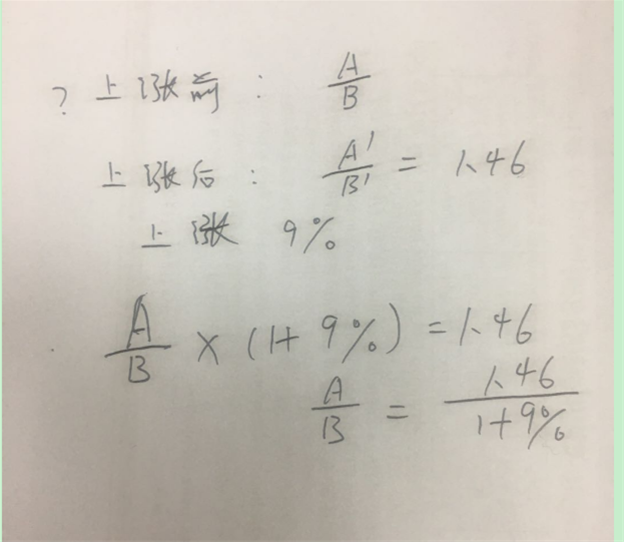 ? 上涨前: A/B
上涨后: A'/B' = 1.46
上涨 9%
A/B × (1+9%) = 1.46
A/B = 1.46/1+9%